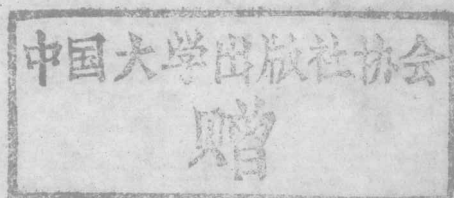 中国大学出版社协会
赠